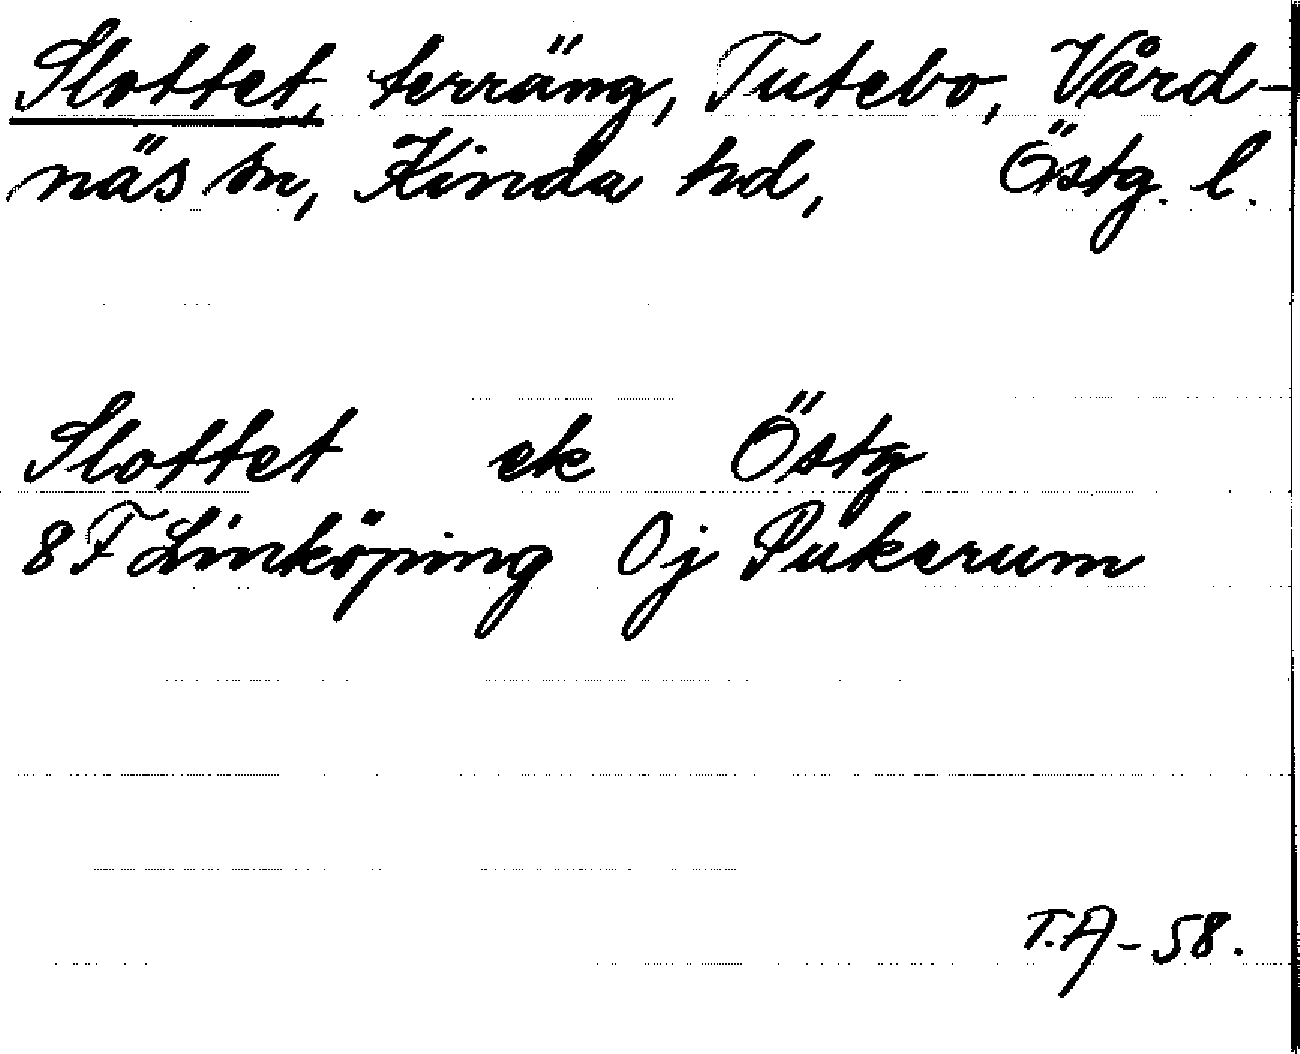 Slottet, terräng, Tutebo, Vård-
näs sn, Kinda hd, Östg. l.
Slottet ek Östg
8 F Linköping 0j Pukerum
T.A - 58.